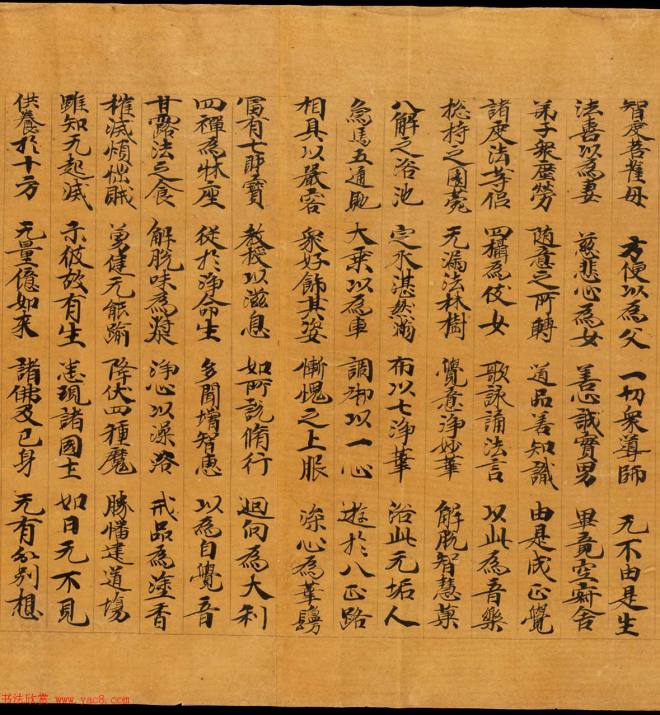 智度菩薩母 方便以為父 一切衆導師 无不由是生
法喜以為妻 慈悲心為女 善心誠實男 畢竟空寂舍
弟子衆塵勞 随意之所轉 道品善知識 由是成正覺
諸度法等侣 四攝為伎女 歌詠誦法言 以此為音樂
惣持之園菀 无漏法林樹 覺意淨妙華 解脱智慧菓
八解之浴池 定水湛然滿 布以七淨華 浴此无垢人
象馬五通馳 大乗以為車 調御以一心 遊於八正路
相具以嚴容 衆好飾其姿 慚愧之上服 深心為華鬘
冨有七財寶 教授以滋息 如所說脩行 迴向為大利
四禪為牀座 従於淨命生 多聞增智恵 以為自覺音
甘露法之食 解脱味為漿 淨心以澡浴 戒品為塗香
摧滅煩惱賊 勇健无能踰 降伏四種魔 勝幡建道場
雖知无起滅 示彼故有生 悉現諸國土 如日无不見
供養於十方 无量億如来 諸佛及己身 无有分别想
书法欣赏 www.yac8.com